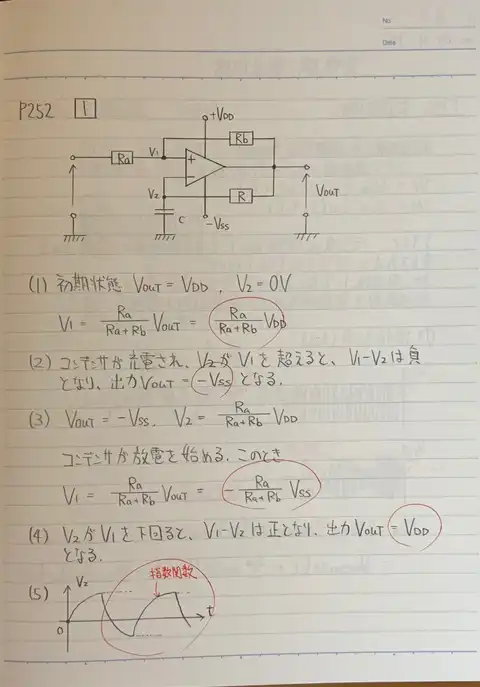 No.
Date
P252 1
+VDD
Rb
Ra V1 +
V2 − R VOUT
C −VSS
(1) 初期状態 VOUT = VDD , V2 = 0V
V1 = Ra/(Ra+Rb) VOUT = Ra/(Ra+Rb) VDD
(2) コンデンサが充電され、V2がV1を超えると、V1-V2は負
となり、出力VOUT = -VSS となる.
(3) VOUT = -VSS. V2 = Ra/(Ra+Rb) VDD
コンデンサが放電を始める. このとき
V1 = Ra/(Ra+Rb) VOUT = - Ra/(Ra+Rb) VSS
(4) V2がV1を下回ると、V1-V2は正となり、出力VOUT = VDD
となる.
(5) V2
指数関数
t
0